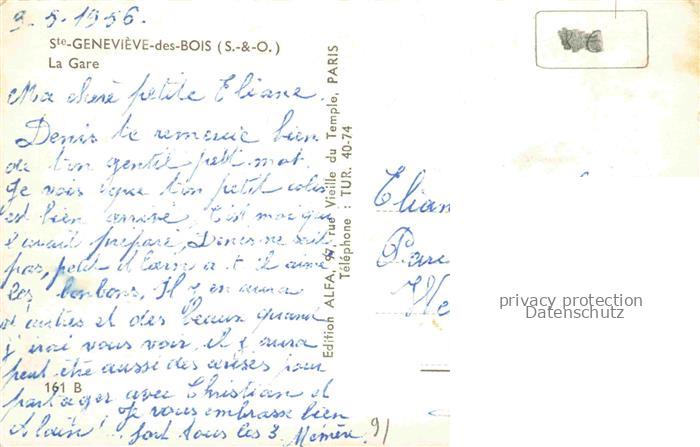 9-5-1956.
Ste-GENEVIÈVE-des-BOIS (S.-&-O.)
La Gare
Ma chère petite Eliane.
Denis te remercie bien
de ton gentil petit mot.
Je vois que ton petit colis
est bien arrivé, C'est moi qui
l'avait préparé, Denis ne sait
pas, petit Alain a-t-il aimé
les bonbons, Il y en aura
d'autres et des beaux quand
j'irai vous voir, il y aura
peut être aussi des cerises pour
partager avec Christian et
Alain! Je vous embrasse bien
fort tous les 3. Mémère.
161 B
91
Edition ALFA, 97, rue Vieille du Temple, PARIS
Téléphone : TUR. 40-74
Elian
Parc
privacy protection
Datenschutz